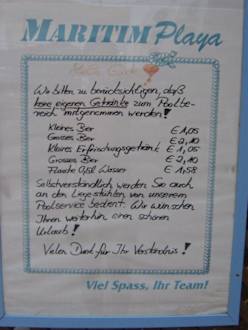 MARITIM Playa
Liebe Gäste
Wir bitten zu berücksichtigen, daß
keine eigenen Getränke zum Poolbe-
reich mitgenommen werden!
Kleines Bier € 1,05
Grosses Bier € 2,10
Kleines Erfrischungsgetränk € 1,05
Grosses € 2,10
Flasche 0,5l Wasser € 1,58
Selbstverständlich werden Sie auch
an den Liegestühlen von unserem
Poolservice bedient. Wir wünschen
Ihnen weiterhin einen schönen
Urlaub!
Vielen Dank für Ihr Verständnis!
Viel Spass, Ihr Team!